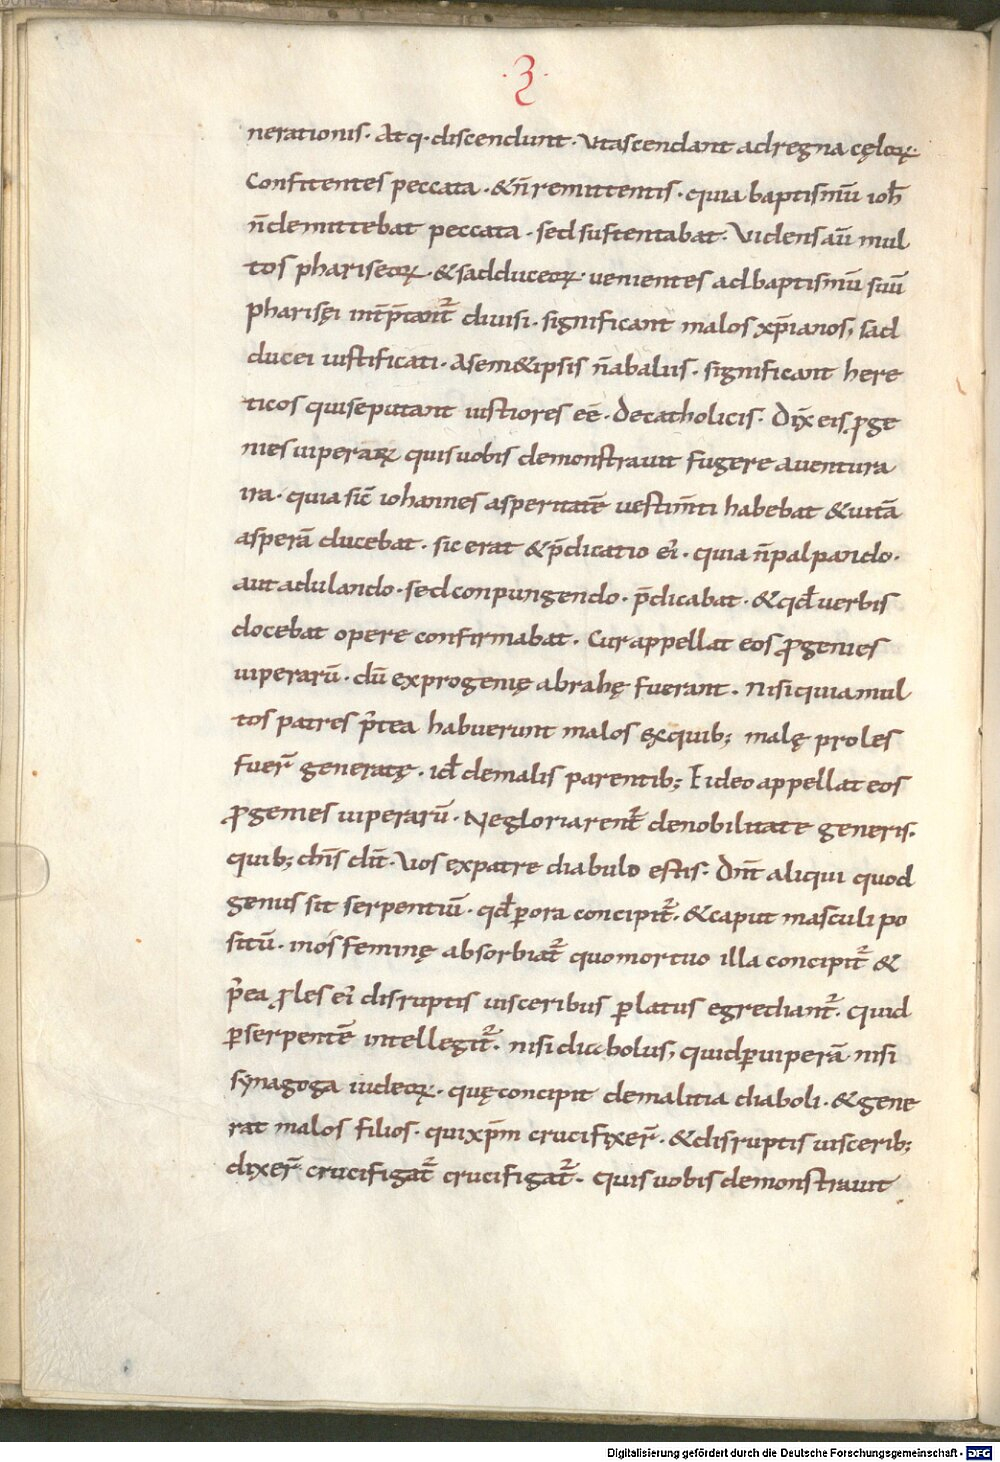 ·Ȝ·
nerationis· Atq· discendunt· Vtascendant adregna cęloꝝ·
Confitentes peccata· &n̄ remittentis· quia baptismū ioħ
n̄demittebat peccata· sedsustentabat· Vidensaū mul
tos phariseoꝝ· &sadduceoꝝ· uenientes adbaptismū suū
pharisęi int̄p̄tant᷑ diuisi· significant malos xp̄ianos, sad
ducei iustificati· Asem&ipsis n̄abaliis· significant here
ticos quiseputant iustiores eē· Decatholicis· Dix̄ eis ꝓge
nies uiperaꝝ quisuobis demonstrauit fugere auentura
ira· quia sic̄ iohannes asperitatē uestim̄ti habebat &uitā
asperā ducebat· sic erat &p̄dicatio ei᷒· quia n̄palpando·
aut adulando· sedconpungendo· p̄dicabat· &qđ uerbis
docebat opere confirmabat· Cur appellat eos ꝓgenies
uiperarū· dū exprogenię abrahę fuerant· Nisi quia mul
tos patres p᷒tea habuerunt malos exquib; malę proles
fuer̄ generatę· iđ demalis parentib; Et ideo appellat eos
ꝓgenies uiperarū· Negloriarent᷑ denobilitate generis·
quib; dn̄s dīt· Vos expatre diabulo estis· Dn̄t aliqui quod
genus sit serpentiū· qđ ꝑora concipit᷑· &caput masculi po
sitū· inos feminę absorbiat᷑ quomortuo illa concipit᷑ &
p᷒ea ꝓles ei᷒ disruptis uisceribus ꝑlatus egrediant᷑· Quid
ꝑserpentē intellegit᷑· nisi diabolus, quidꝑuiperā nisi
synagoga iudeoꝝ· quę concipit demalitia diaboli· &gene
rat malos filios· quixp̄m crucifixer̄· &disruptis uiscerib;
dixer̄ crucifigat᷑ crucifigat᷑· Quis uobis demonstrauit
Digitalisierung gefördert durch die Deutsche Forschungsgemeinschaft - DFG